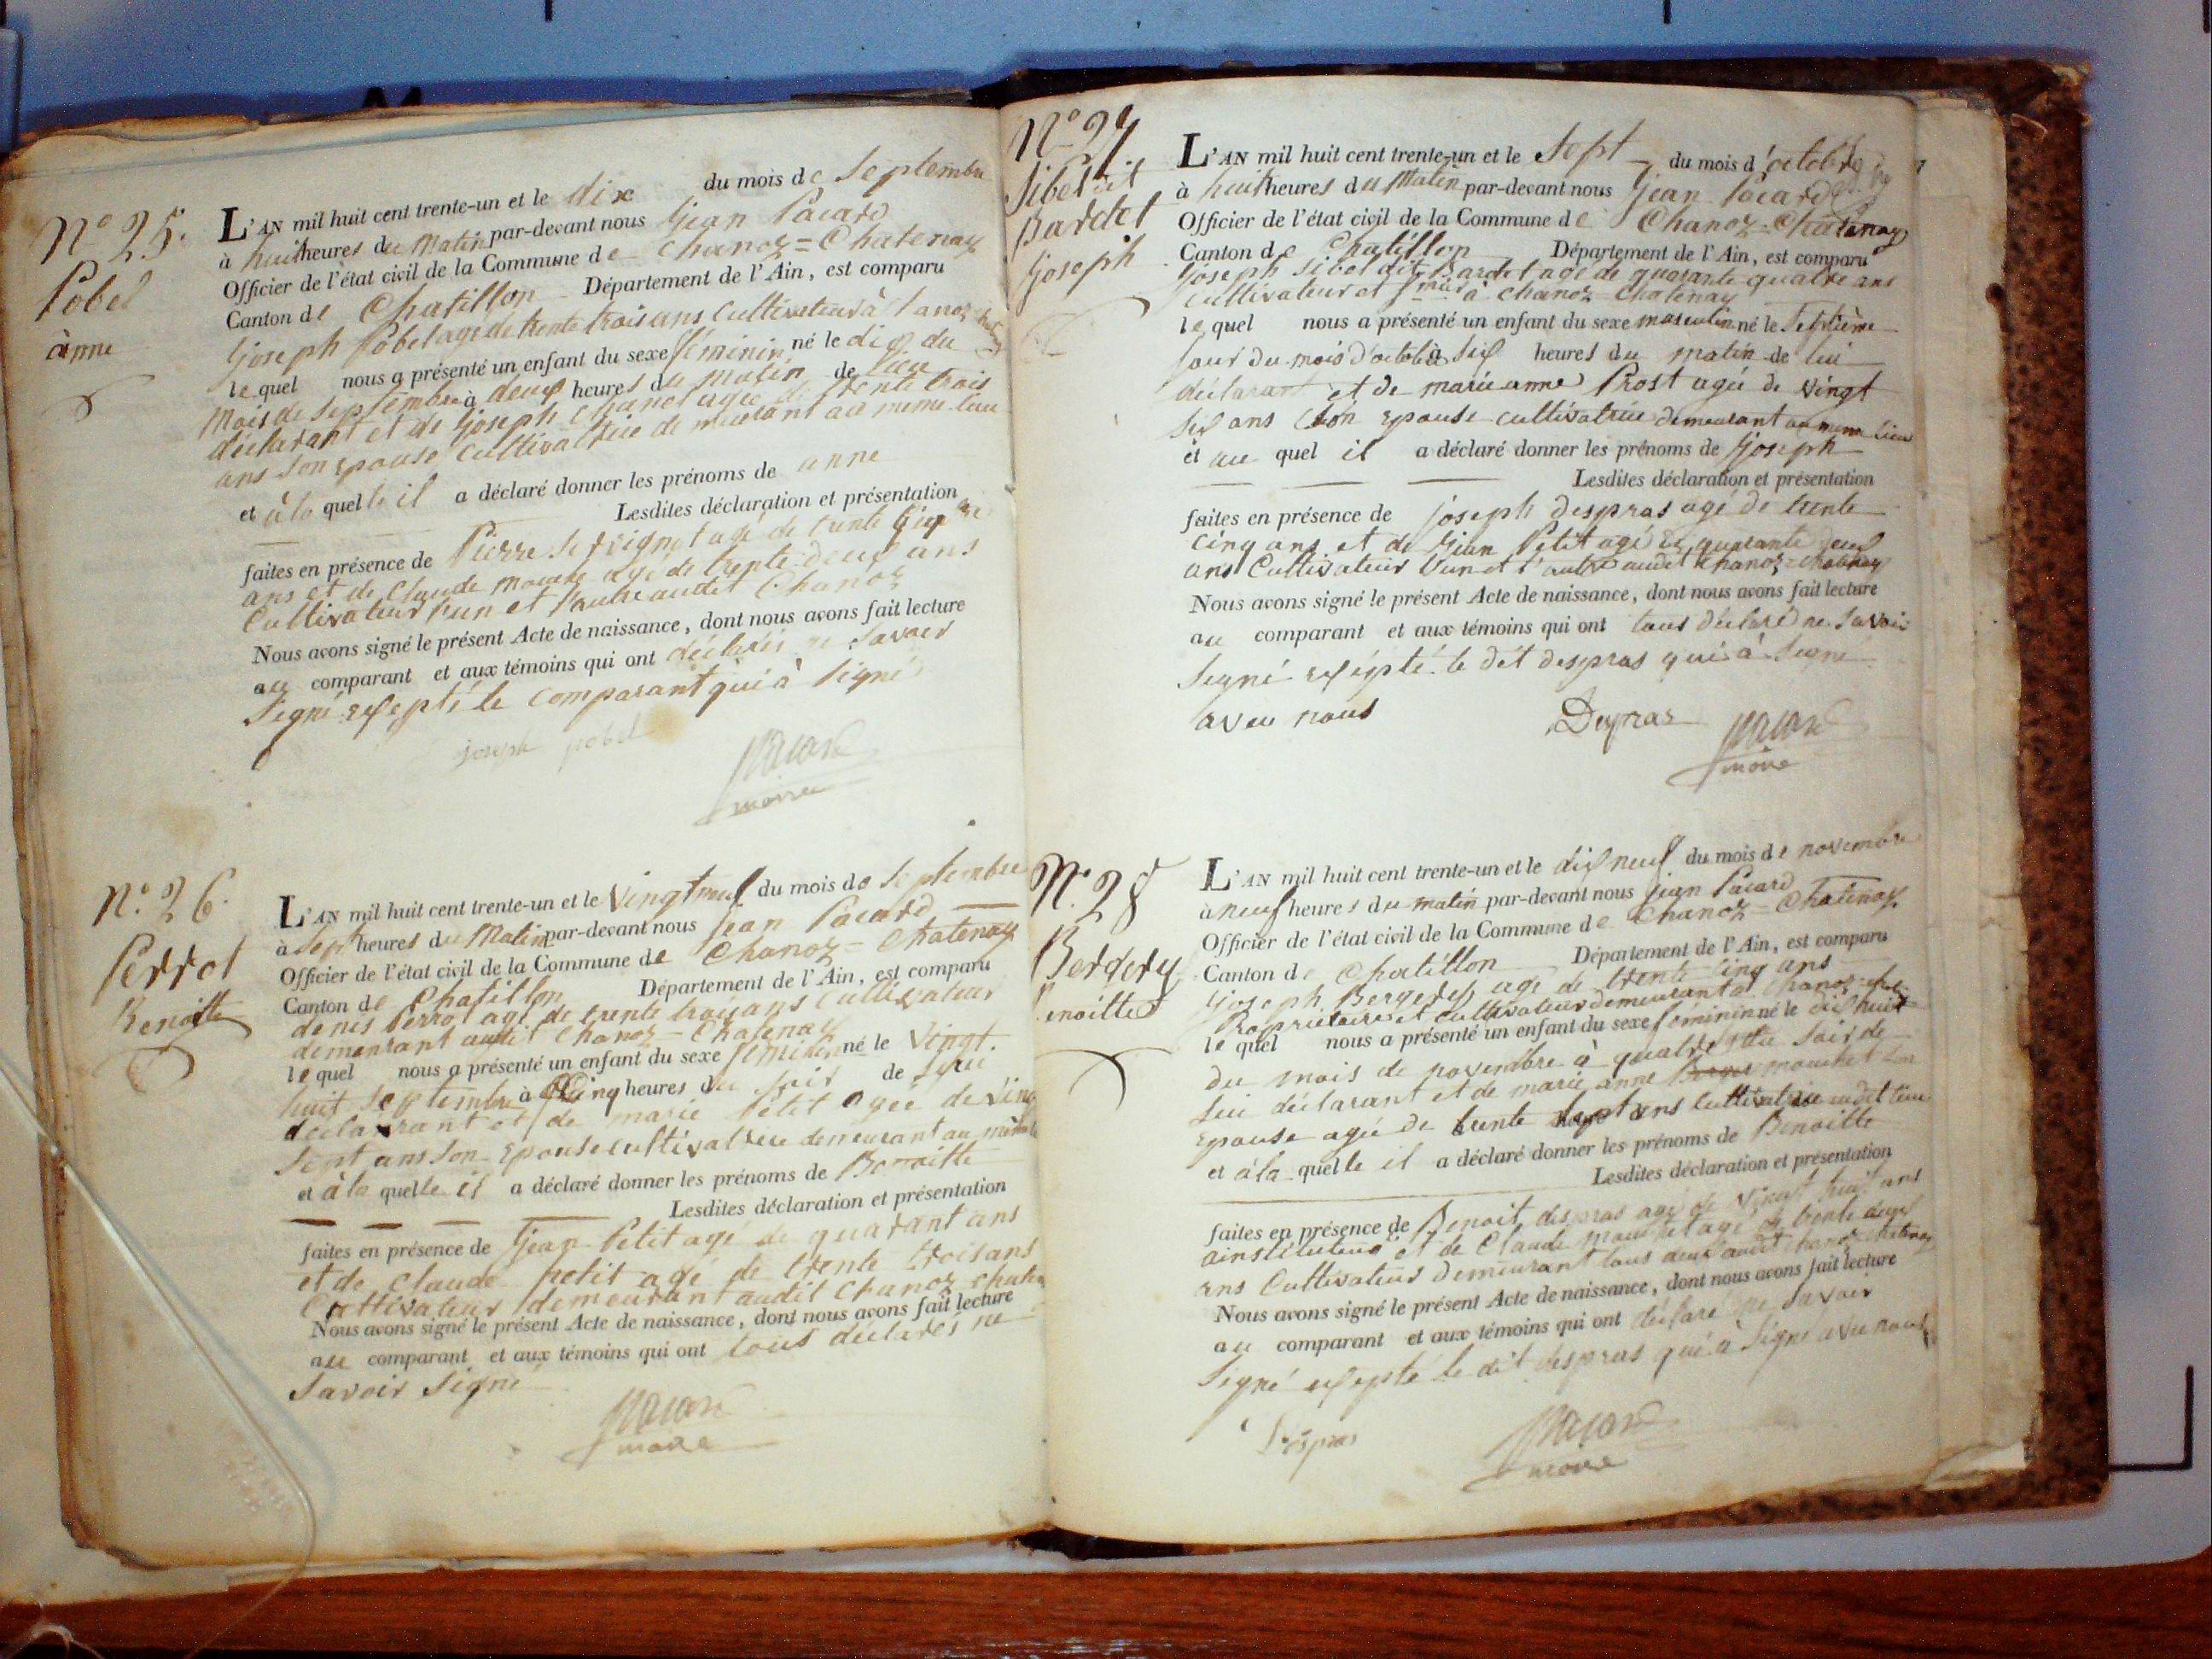 N° 25.
Pobel
anne
L'AN mil huit cent trente-un et le dix du mois de Septembre
à huit heures du Matin par-devant nous Jean Pacard
Officier de l'état civil de la Commune de Chanoz=Chatenay
Canton de Chatillon Département de l'Ain, est comparu
joseph Pobel agé de trente trois ans Cultivateur à Chanoz
le quel nous a présenté un enfant du sexe feminin né le dix du
Mois de Septembre à deux heures du matin de lui
déclarant et de joseph Chanel agée de trente trois
ans son epouse Cultivatrice demeurant au meme lieu
et à la quelle il a déclaré donner les prénoms de anne
Lesdites déclaration et présentation
faites en présence de Pierre agé de trente
ans et de Claude agé de trente deux ans
Cultivateur l'un et l'autre audit Chanoz
Nous avons signé le présent Acte de naissance, dont nous avons fait lecture
au comparant et aux témoins qui ont déclarés ne Savoir
Signé exepté le Comparant qui à Signé
joseph pobel
Pacard
maire
N° 26.
Perrot
Benoitte
L'AN mil huit cent trente-un et le Vingt neuf du mois de Septembre
à Sept heures du Matin par-devant nous Jean Pacard
Officier de l'état civil de la Commune de Chanoz=Chatenay
Canton de Chatillon Département de l'Ain, est comparu
denis Perrot agé de trente trois ans Cultivateur
demeurant audit Chanoz=Chatenay
le quel nous a présenté un enfant du sexe feminin né le Vingt
huit Septembre à Cinq heures du Soir de Lui
déclarrant et de marie Petit agée de Vingt
Sept ans Son Epouse cultivatrice demeurant au même
et à la quelle il a déclaré donner les prénoms de Benoitte
Lesdites déclaration et présentation
faites en présence de Jean Petit agé de quarant ans
et de Claude petit agé de trente trois ans
Cultivateur demeurant audit Chanoz
Nous avons signé le présent Acte de naissance, dont nous avons fait lecture
au comparant et aux témoins qui ont tous déclarés ne
Savoir Signé
Pacard
maire
N° 27
Sibel dit
Bardet
joseph
L'AN mil huit cent trente-un et le Sept du mois d'octobre
à huit heures du Matin par-devant nous Jean Pacard
Officier de l'état civil de la Commune de Chanoz=Chatenay
Canton de Chatillon Département de l'Ain, est comparu
joseph Sibel dit Bardet agé de quarante quatre ans
Cultivateur et à Chanoz=Chatenay
le quel nous a présenté un enfant du sexe masculin né le Septième
Jour du mois d'octobre à Six heures du matin de lui
déclarant et de marie anne Prost agée de Vingt
Six ans Son Epouse cultivatrice demeurant au meme lieu
et au quel il a déclaré donner les prénoms de joseph
Lesdites déclaration et présentation
faites en présence de joseph despras agé de trente
Cinq ans et de Jean Petit agé de quarante
ans Cultivateur l'un et l'autre audit Chanoz=Chatenay
Nous avons signé le présent Acte de naissance, dont nous avons fait lecture
au comparant et aux témoins qui ont tous déclaré ne Savoir
Signé exepté le dit despras qui à Signé
avec nous
Despras
Pacard
maire
N° 28
Benoitte
L'AN mil huit cent trente-un et le dix neuf du mois de novembre
à neuf heures du matin par-devant nous Jean Pacard
Officier de l'état civil de la Commune de Chanoz=Chatenay
Canton de Chatillon Département de l'Ain, est comparu
joseph agé de trente cinq ans
Propriétaire et cultivateur demeurant à Chanoz
le quel nous a présenté un enfant du sexe féminin né le dix huit
du mois de novembre à quatre du Soir de
Lui déclarant et de marie anne mouchet Son
Epouse agée de trente Sept ans Cultivatrice audit lieu
et à la quelle il a déclaré donner les prénoms de Benoitte
Lesdites déclaration et présentation
faites en présence de Benoit despras agé de Vingt huit ans
instituteur et de Claude mouchet agé de trente deux
ans Cultivateur demeurant tous deux audit Chanoz Chatenay
Nous avons signé le présent Acte de naissance, dont nous avons fait lecture
au comparant et aux témoins qui ont déclaré ne Savoir
Signé exepté le dit despras qui à Signé avec nous
Despras
Pacard
maire